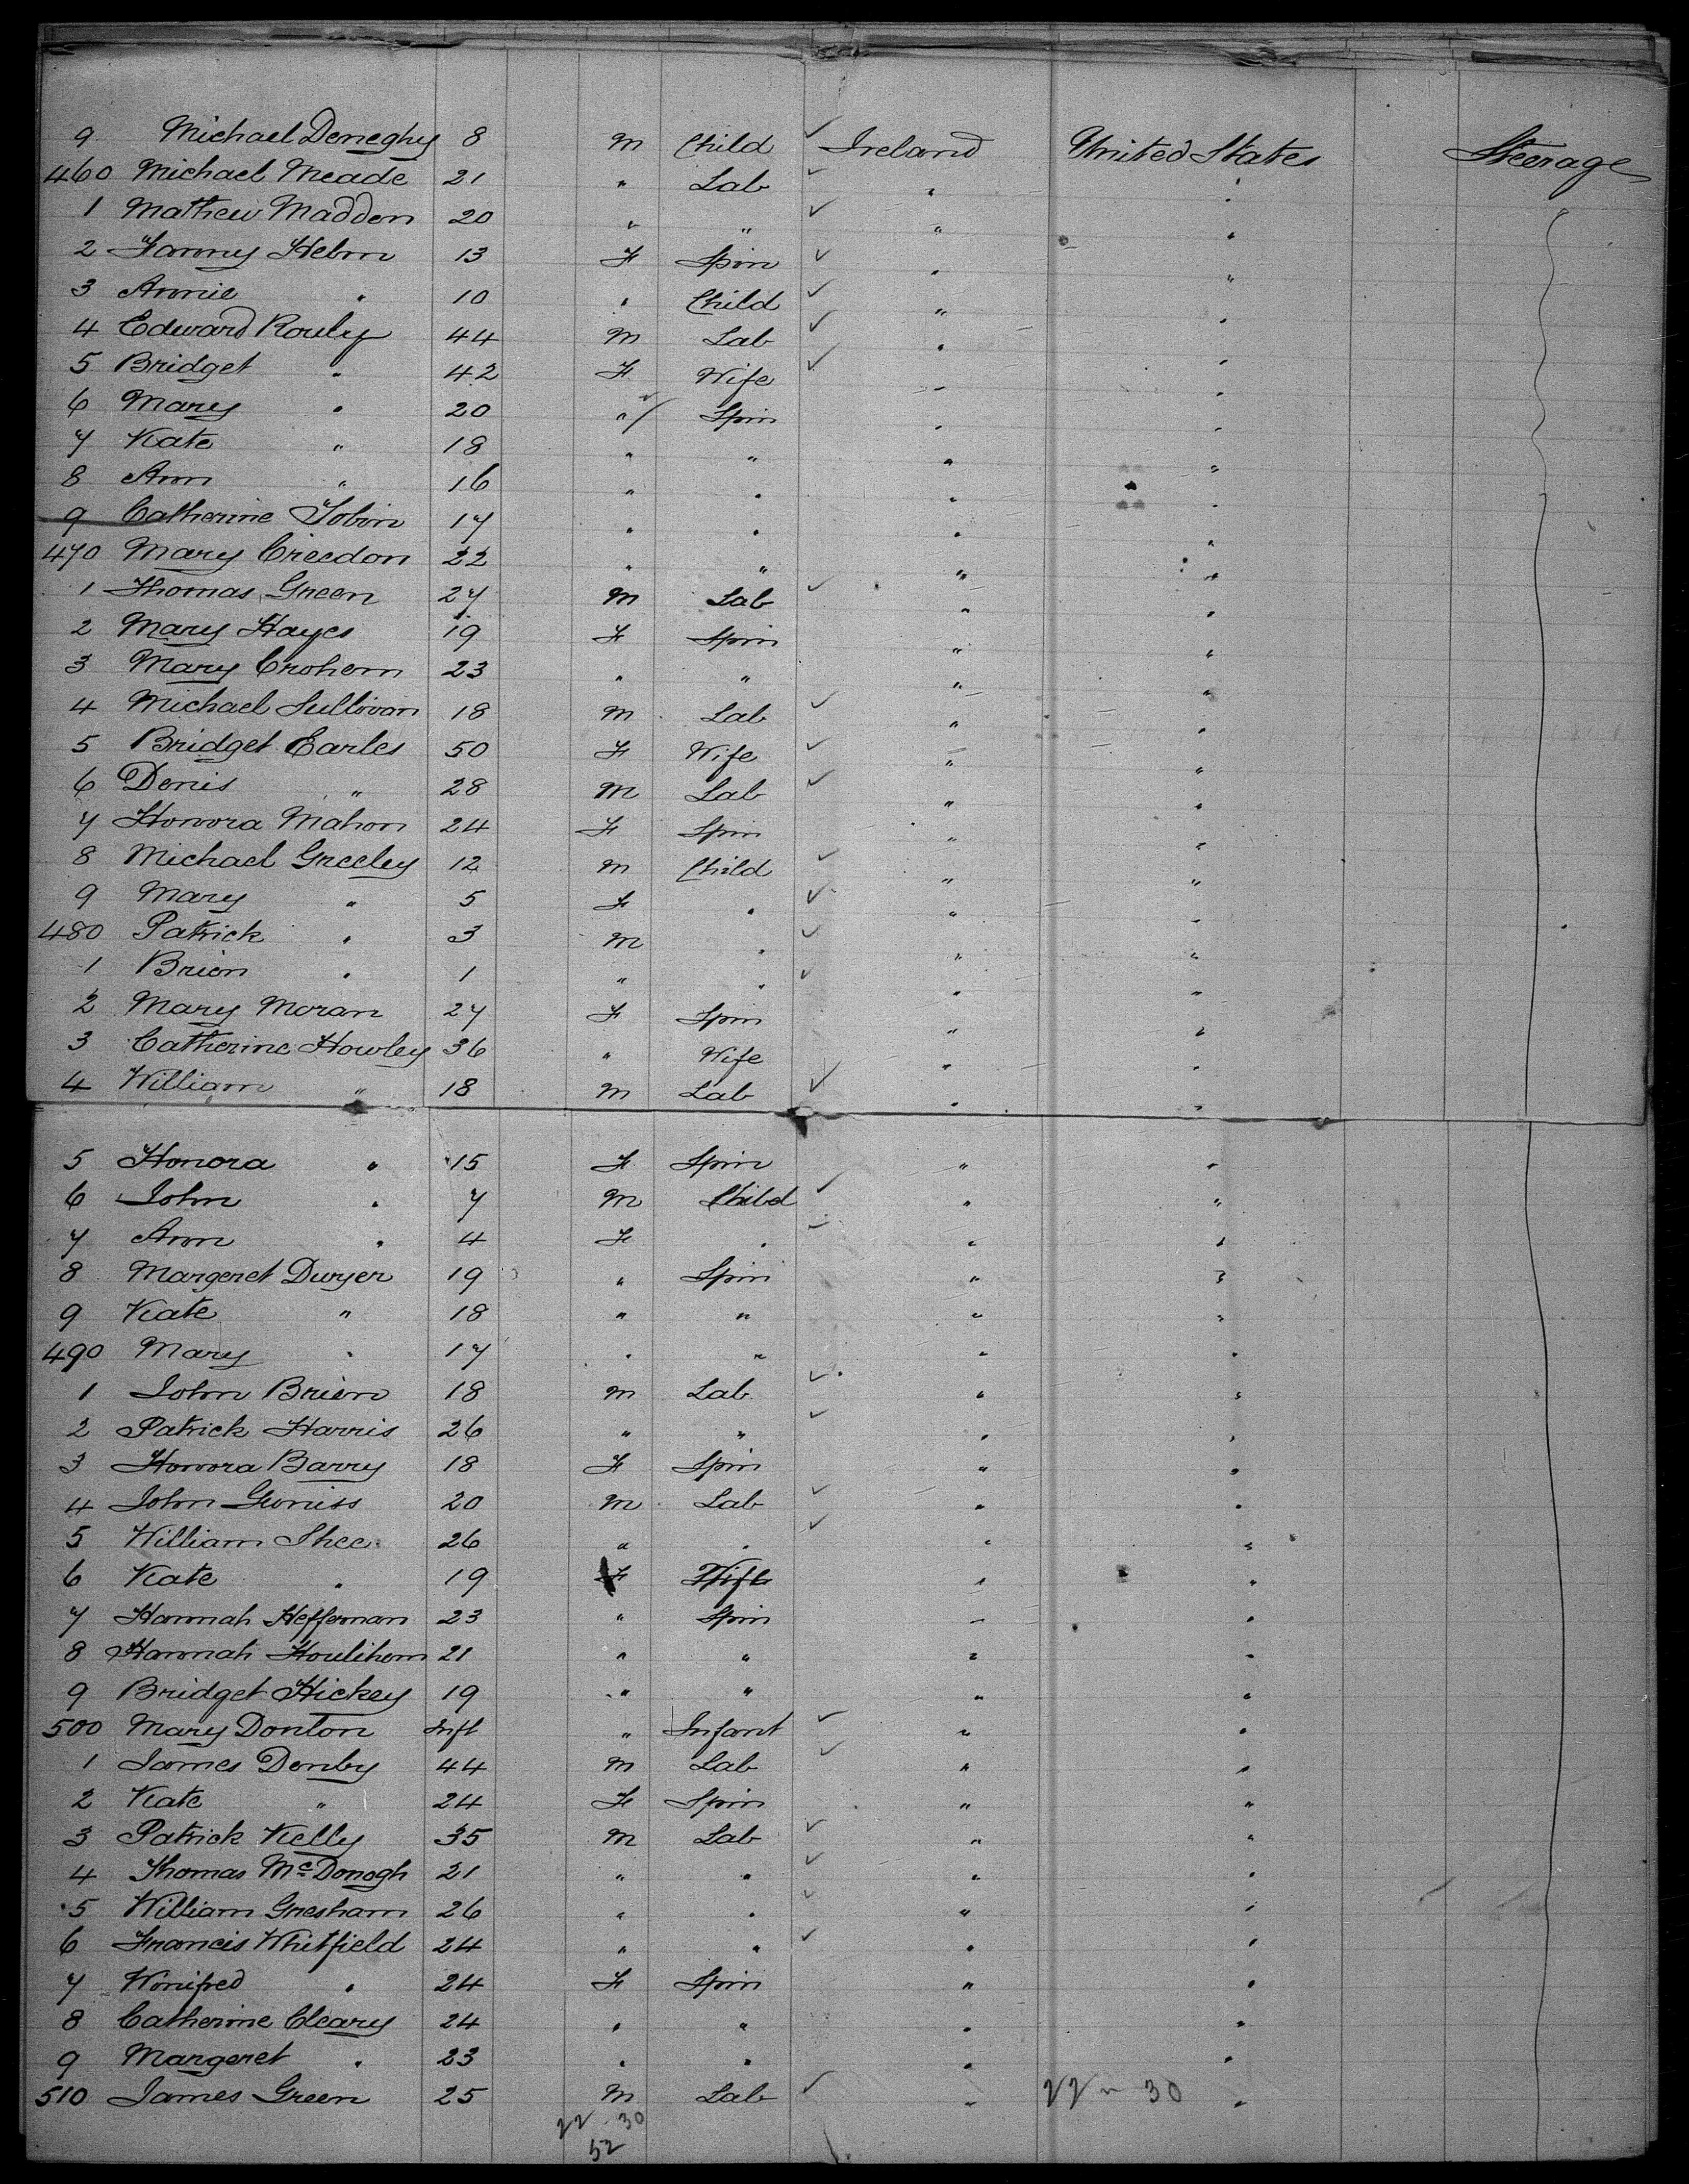 9 Michael Deneghy 8 M Child ✓ Ireland United States Steerage
460 Michael Meade 21 " Lab ✓ " "
1 Mathew Madden 20 " " ✓ " "
2 Fanny Helm 13 F Spin ✓ " "
3 Annie " 10 " Child ✓ " "
4 Edward Rouly 44 M Lab ✓ " "
5 Bridget " 42 F Wife ✓ " "
6 Mary " 20 " Spin " "
7 Kate " 18 " " " "
8 Ann " 16 " " " "
9 Catherine Tobin 17 " " " "
470 Mary Creedon 22 " " " "
1 Thomas Green 27 M Lab ✓ " "
2 Mary Hayes 19 F Spin " "
3 Mary Crohem 23 " " " "
4 Michael Sullivan 18 M Lab ✓ " "
5 Bridget Earles 50 F Wife ✓ " "
6 Denis " 28 M Lab ✓ " "
7 Honora Mahon 24 F Spin " "
8 Michael Greeley 12 M Child ✓ " "
9 Mary " 5 F " ✓ " "
480 Patrick " 3 M " ✓ " "
1 Brien " 1 " " ✓ " "
2 Mary Moran 27 F Spin " "
3 Catherine Howley 36 " Wife " "
4 William " 18 M Lab ✓ " "
5 Honora " 15 F Spin " "
6 John " 7 M Child ✓ " "
7 Ann " 4 F " ✓ " "
8 Margeret Dwyer 19 " Spin " "
9 Kate " 18 " " " "
490 Mary " 17 " " " "
1 John Brien 18 M Lab ✓ " "
2 Patrick Harris 26 " " ✓ " "
3 Honora Barry 18 F Spin " "
4 John 20 M Lab ✓ " "
5 William Shee 26 " " ✓ " "
6 Kate " 19 F Wife " "
7 Hannah Heffernan 23 " Spin " "
8 Hannah Houlihan 21 " " " "
9 Bridget Hickey 19 " " " "
500 Mary Donlon Inft " Infant ✓ " "
1 James Denby 44 M Lab ✓ " "
2 Kate " 24 F Spin " "
3 Patrick Kelly 35 M Lab ✓ " "
4 Thomas McDonogh 21 " " ✓ " "
5 William Gresham 26 " " ✓ " "
6 Francis Whitfield 24 " " ✓ " "
7 Winifred " 24 F Spin " "
8 Catherine Cleary 24 " " " "
9 Margeret " 23 " " " "
510 James Green 25 M Lab ✓ " 22 - 30 "
22 - 30
52